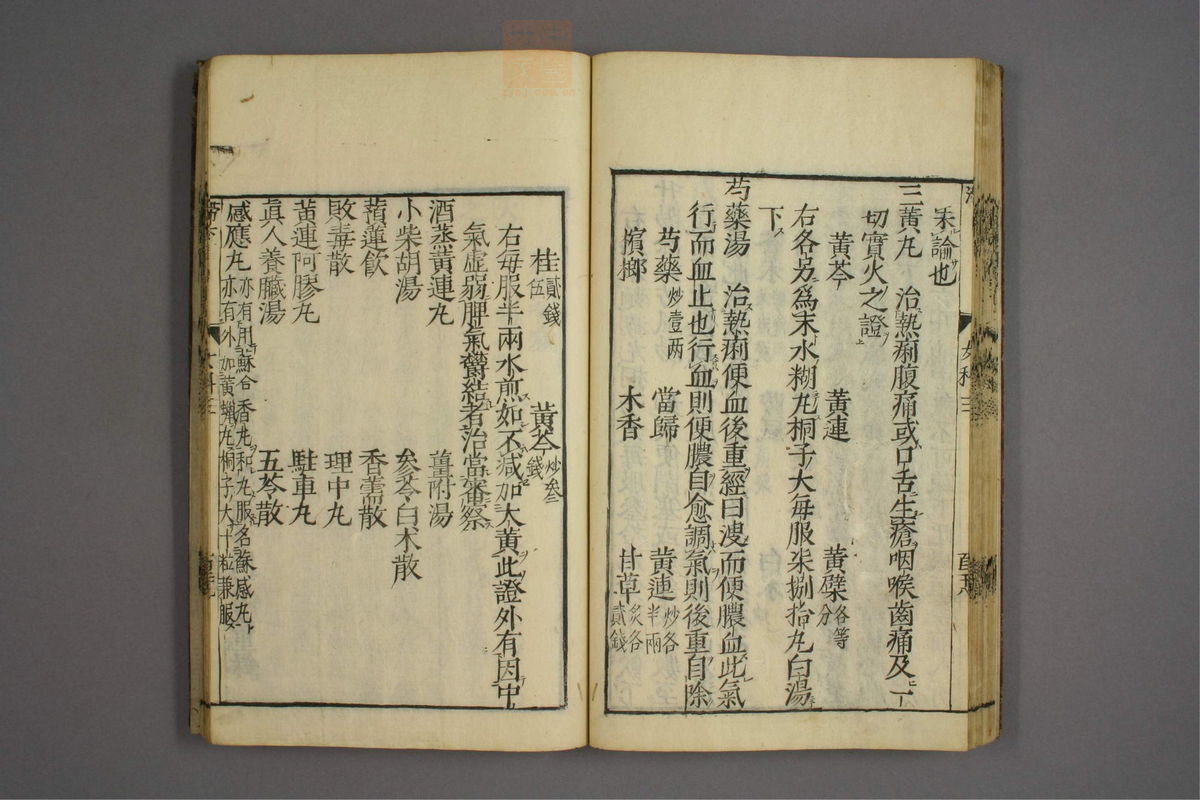 未論也
三黃丸　治熱痢腹痛或口舌生瘡咽喉齒痛及一
切實火之證
黃芩　黃連　黃蘗各等分
右各另爲末水糊丸桐子大每服柒捌拾丸白湯
下
芍藥湯　治熱痢便血後重經曰溲而便膿血此氣
行而血止也行血則便膿自愈調氣則後重自除
芍藥炒壹两　當歸　黃連炒各半兩
檳榔　木香　甘草炙各貳錢
桂貳錢伍　黃芩炒叁錢
右每服半兩水煎如不減加大黃此證外有因中
氣虛弱脾氣欝結者治當審察
酒蒸黃連丸　薑附湯
小柴胡湯　參苓白朮散
蕷蓮飲　香薷散
敗毒散　理中丸
黃連阿膠丸　駐車丸
眞人養臟湯　五苓散
感應丸亦有用蘇合香丸和丸服名蘇感丸
亦有外加黃蠟丸桐子大十粒兼服
女科三